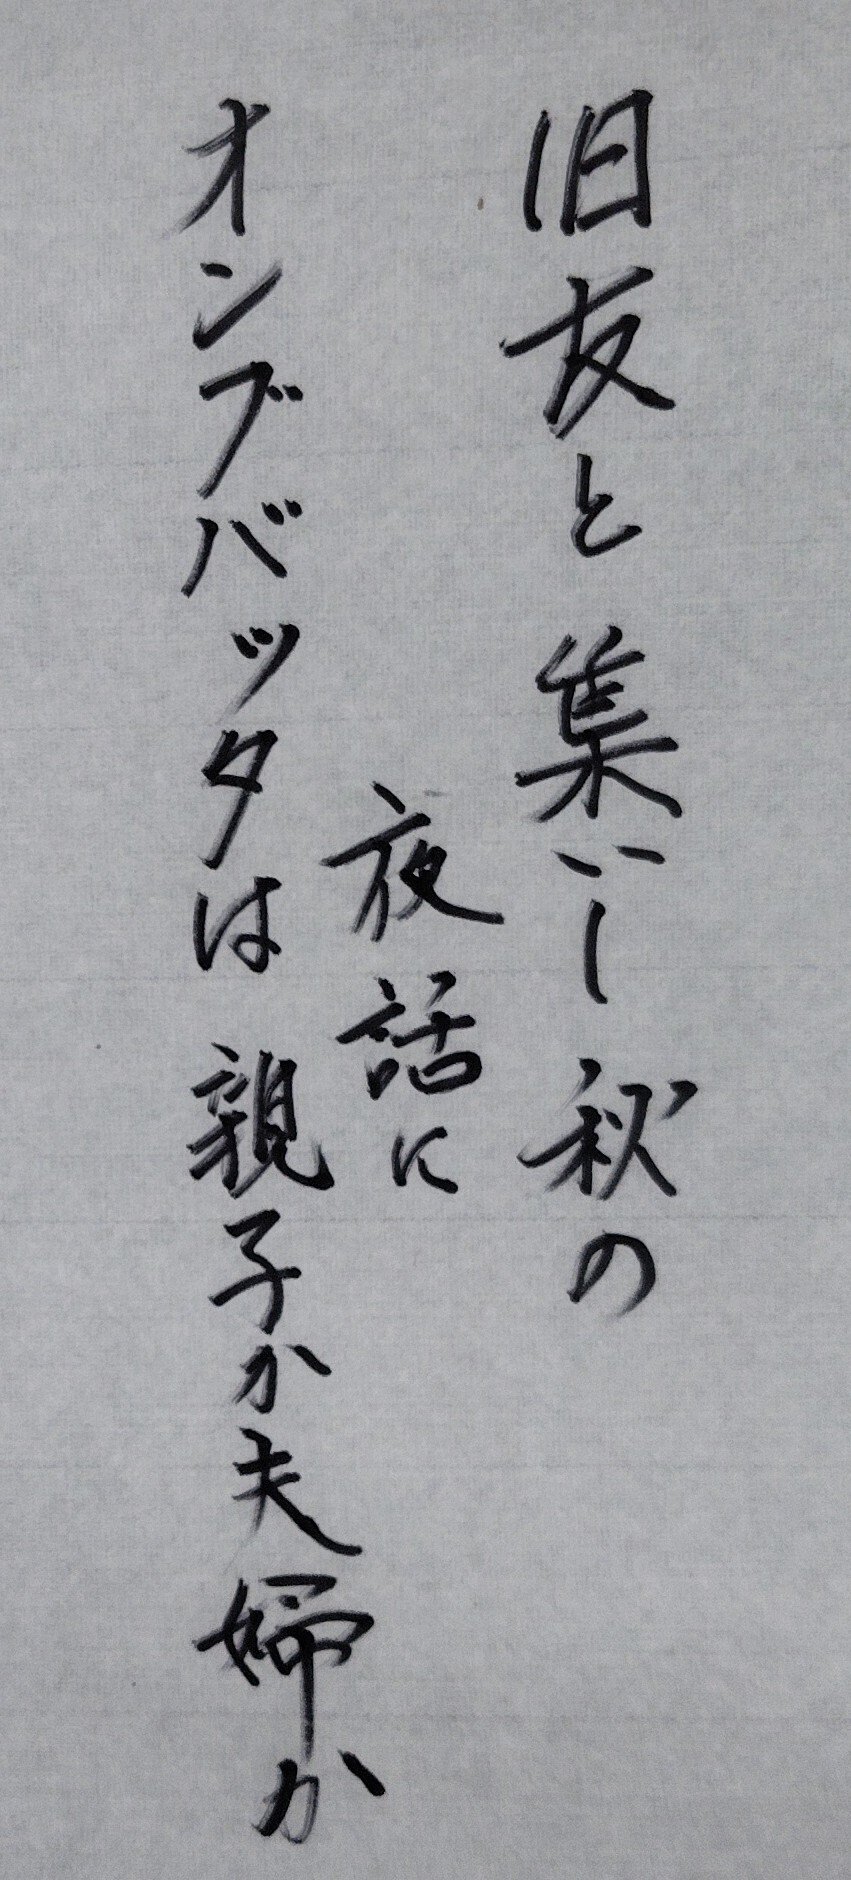 旧友と集いし秋の
夜話に
オンブバッタは親子か夫婦か